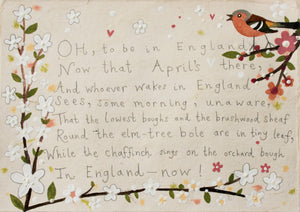 OH, to be in England
Now that April's there,
And whoever wakes in England
Sees, some morning, unaware,
That the lowest boughs and the brushwood sheaf
Round the elm-tree bole are in tiny leaf,
While the chaffinch sings on the orchard bough
In England—now!